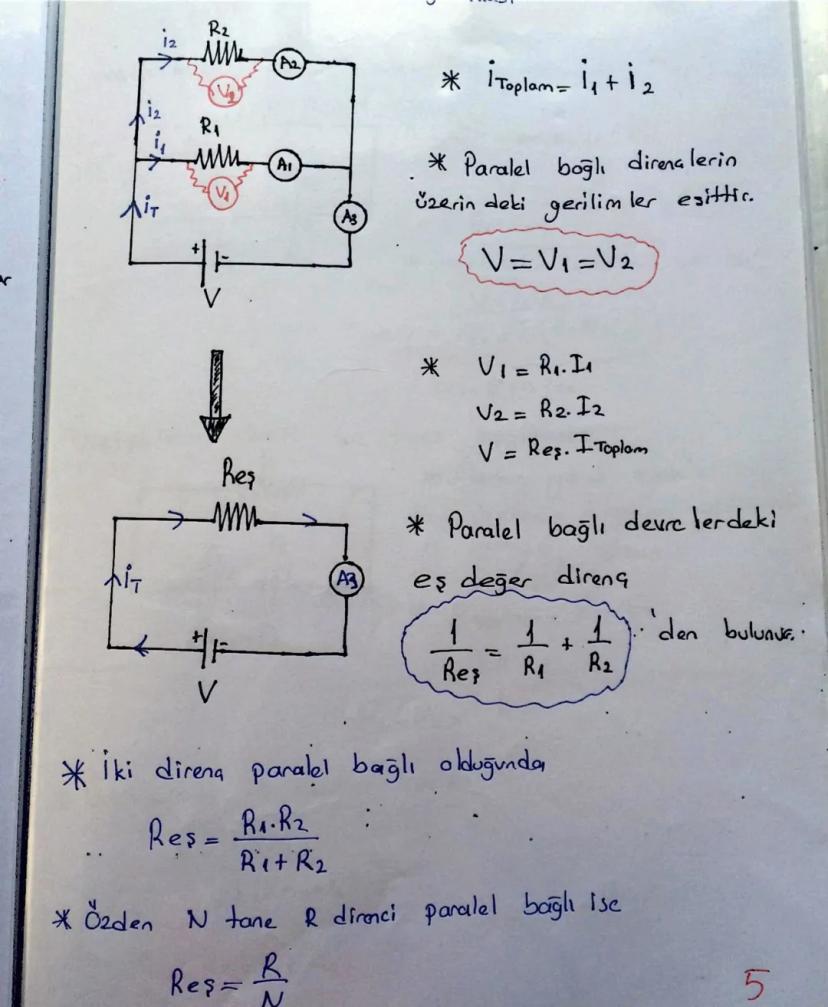 R2
i2
A2
V2
i2
R1
i1
A1
V1
iT
A3
+ -
V
* iToplam = i1 + i2
* Paralel bağlı dirençlerin
üzerindeki gerilimler eşittir.
V = V1 = V2
* V1 = R1.I1
V2 = R2.I2
V = Reş.IToplam
Reş
iT
A3
+ -
V
* Paralel bağlı devrelerdeki
eş değer direnç
1/Reş = 1/R1 + 1/R2 'den bulunur.
* İki direnç paralel bağlı olduğunda
Reş = R1.R2/R1+R2
* Özden N tane R direnci paralel bağlı ise
Reş = R/N
5